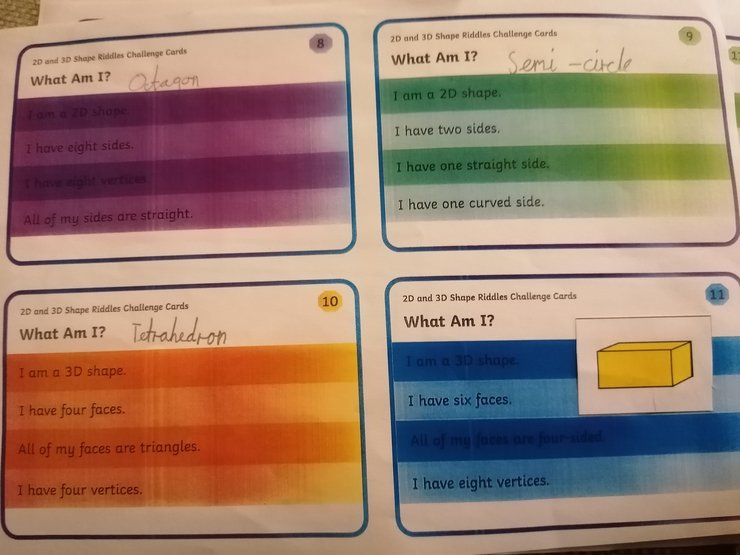 2D and 3D Shape Riddles Challenge Cards
8
What Am I? Octagon
I am a 2D shape.
I have eight sides.
I have eight vertices.
All of my sides are straight.
2D and 3D Shape Riddles Challenge Cards
9
What Am I? Semi-circle
I am a 2D shape.
I have two sides.
I have one straight side.
I have one curved side.
2D and 3D Shape Riddles Challenge Cards
10
What Am I? Tetrahedron
I am a 3D shape.
I have four faces.
All of my faces are triangles.
I have four vertices.
2D and 3D Shape Riddles Challenge Cards
11
What Am I?
I am a 3D shape.
I have six faces.
All of my faces are four-sided.
I have eight vertices.